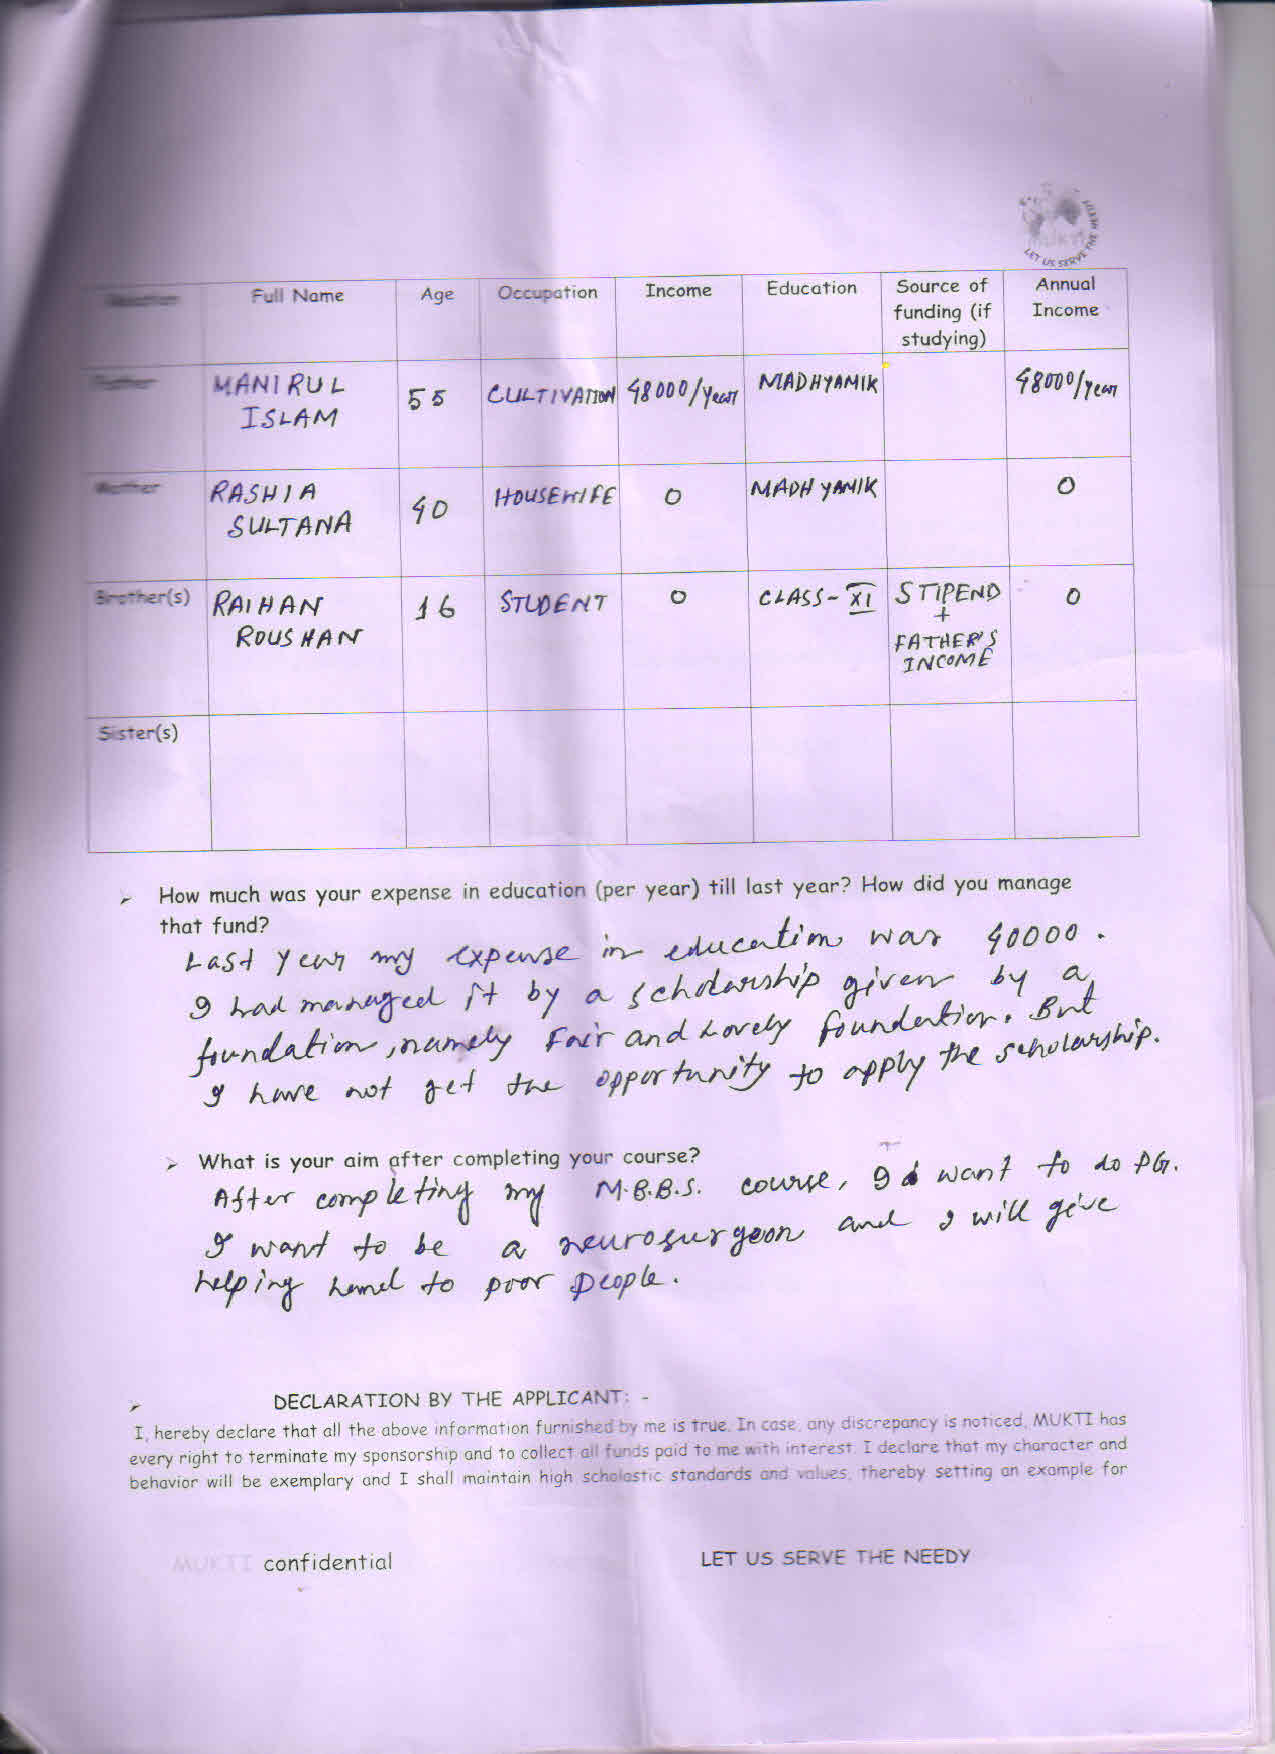 MUKTI
LET US SERVE THE NEEDY
Relation Full Name Age Occupation Income Education Source of funding (if studying) Annual Income
Father MANIRUL ISLAM 55 CULTIVATION 48000/year MADHYAMIK 48000/year
Mother RASHIA SULTANA 40 HOUSEWIFE 0 MADHYAMIK 0
Brother(s) RAIHAN ROUSHAN 16 STUDENT 0 CLASS-XI STIPEND + FATHER'S INCOME 0
Sister(s)
➢ How much was your expense in education (per year) till last year? How did you manage
that fund?
Last year my expense in education was 40000.
I had managed it by a scholarship given by a
foundation, namely Fair and Lovely foundation. But
I have not get the opportunity to apply the scholarship.
➢ What is your aim after completing your course?
After completing my M.B.B.S. course, I want to do PG.
I want to be a neurosurgeon and I will give
helping hand to poor people.
➢ DECLARATION BY THE APPLICANT: -
I, hereby declare that all the above information furnished by me is true. In case, any discrepancy is noticed, MUKTI has
every right to terminate my sponsorship and to collect all funds paid to me with interest. I declare that my character and
behavior will be exemplary and I shall maintain high scholastic standards and values, thereby setting an example for
MUKTI confidential LET US SERVE THE NEEDY